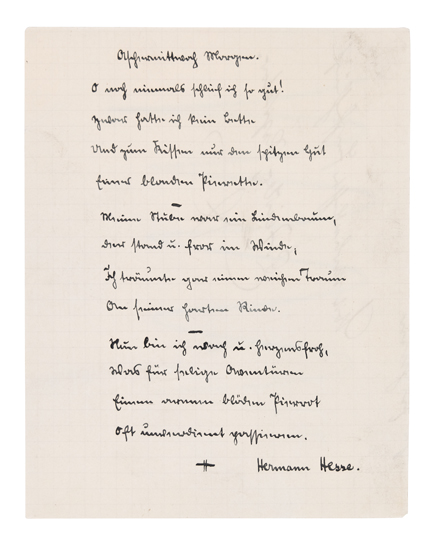 Aschermittwoch Morgen.
O noch niemals schlief ich so gut!
Zwar hatte ich kein Bette
Und zum Kissen nur den spitzen Hut
Einer blonden Pierrette.
Meine Stube war ein Lindenbaum,
Der stand u. fror im Winde,
Ich träumte gar einen weichen Traum
An seiner harten Rinde.
Nun bin ich wach u. herzensfroh,
Was für selige Aventüren
Einem armen blöden Pierrot
Oft unverdient passieren.
Hermann Hesse.